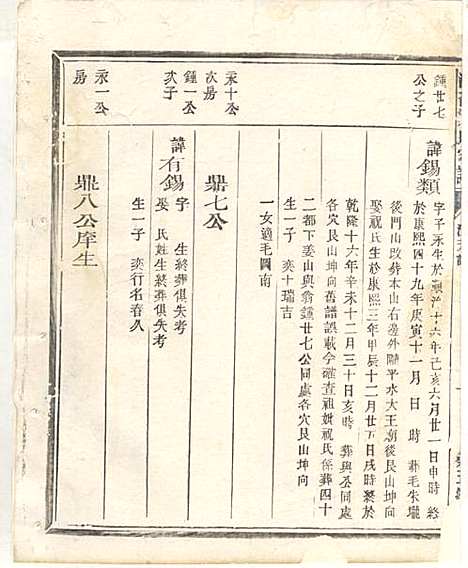 鍾廿七
公之子
諱錫類
字子承生於順治十六年己亥六月廿一日申時 終
於康熙四十九年庚寅十一月 日 時 葬毛朱壠
後門山改葬本山右邊外隴平水大王廟後艮山坤向
娶祝氏生於康熙三年甲辰十二月廿五日戌時歿於
乾隆十六年辛未十二月三十日亥時 葬與公同處
各穴艮山坤向舊譜誤載今確查祖妣祝氏係葬四十
二都下姜山與翁鍾廿七公同處各穴艮山坤向
生一子 奕十瑞吉
一女適毛圓南
永十公
次房
鼎七公
鍾一公
次子
諱有錫
字 生終葬俱失考
娶 氏生終葬俱失考
生一子 奕行名春久
永一公
房
鼎八公庠生